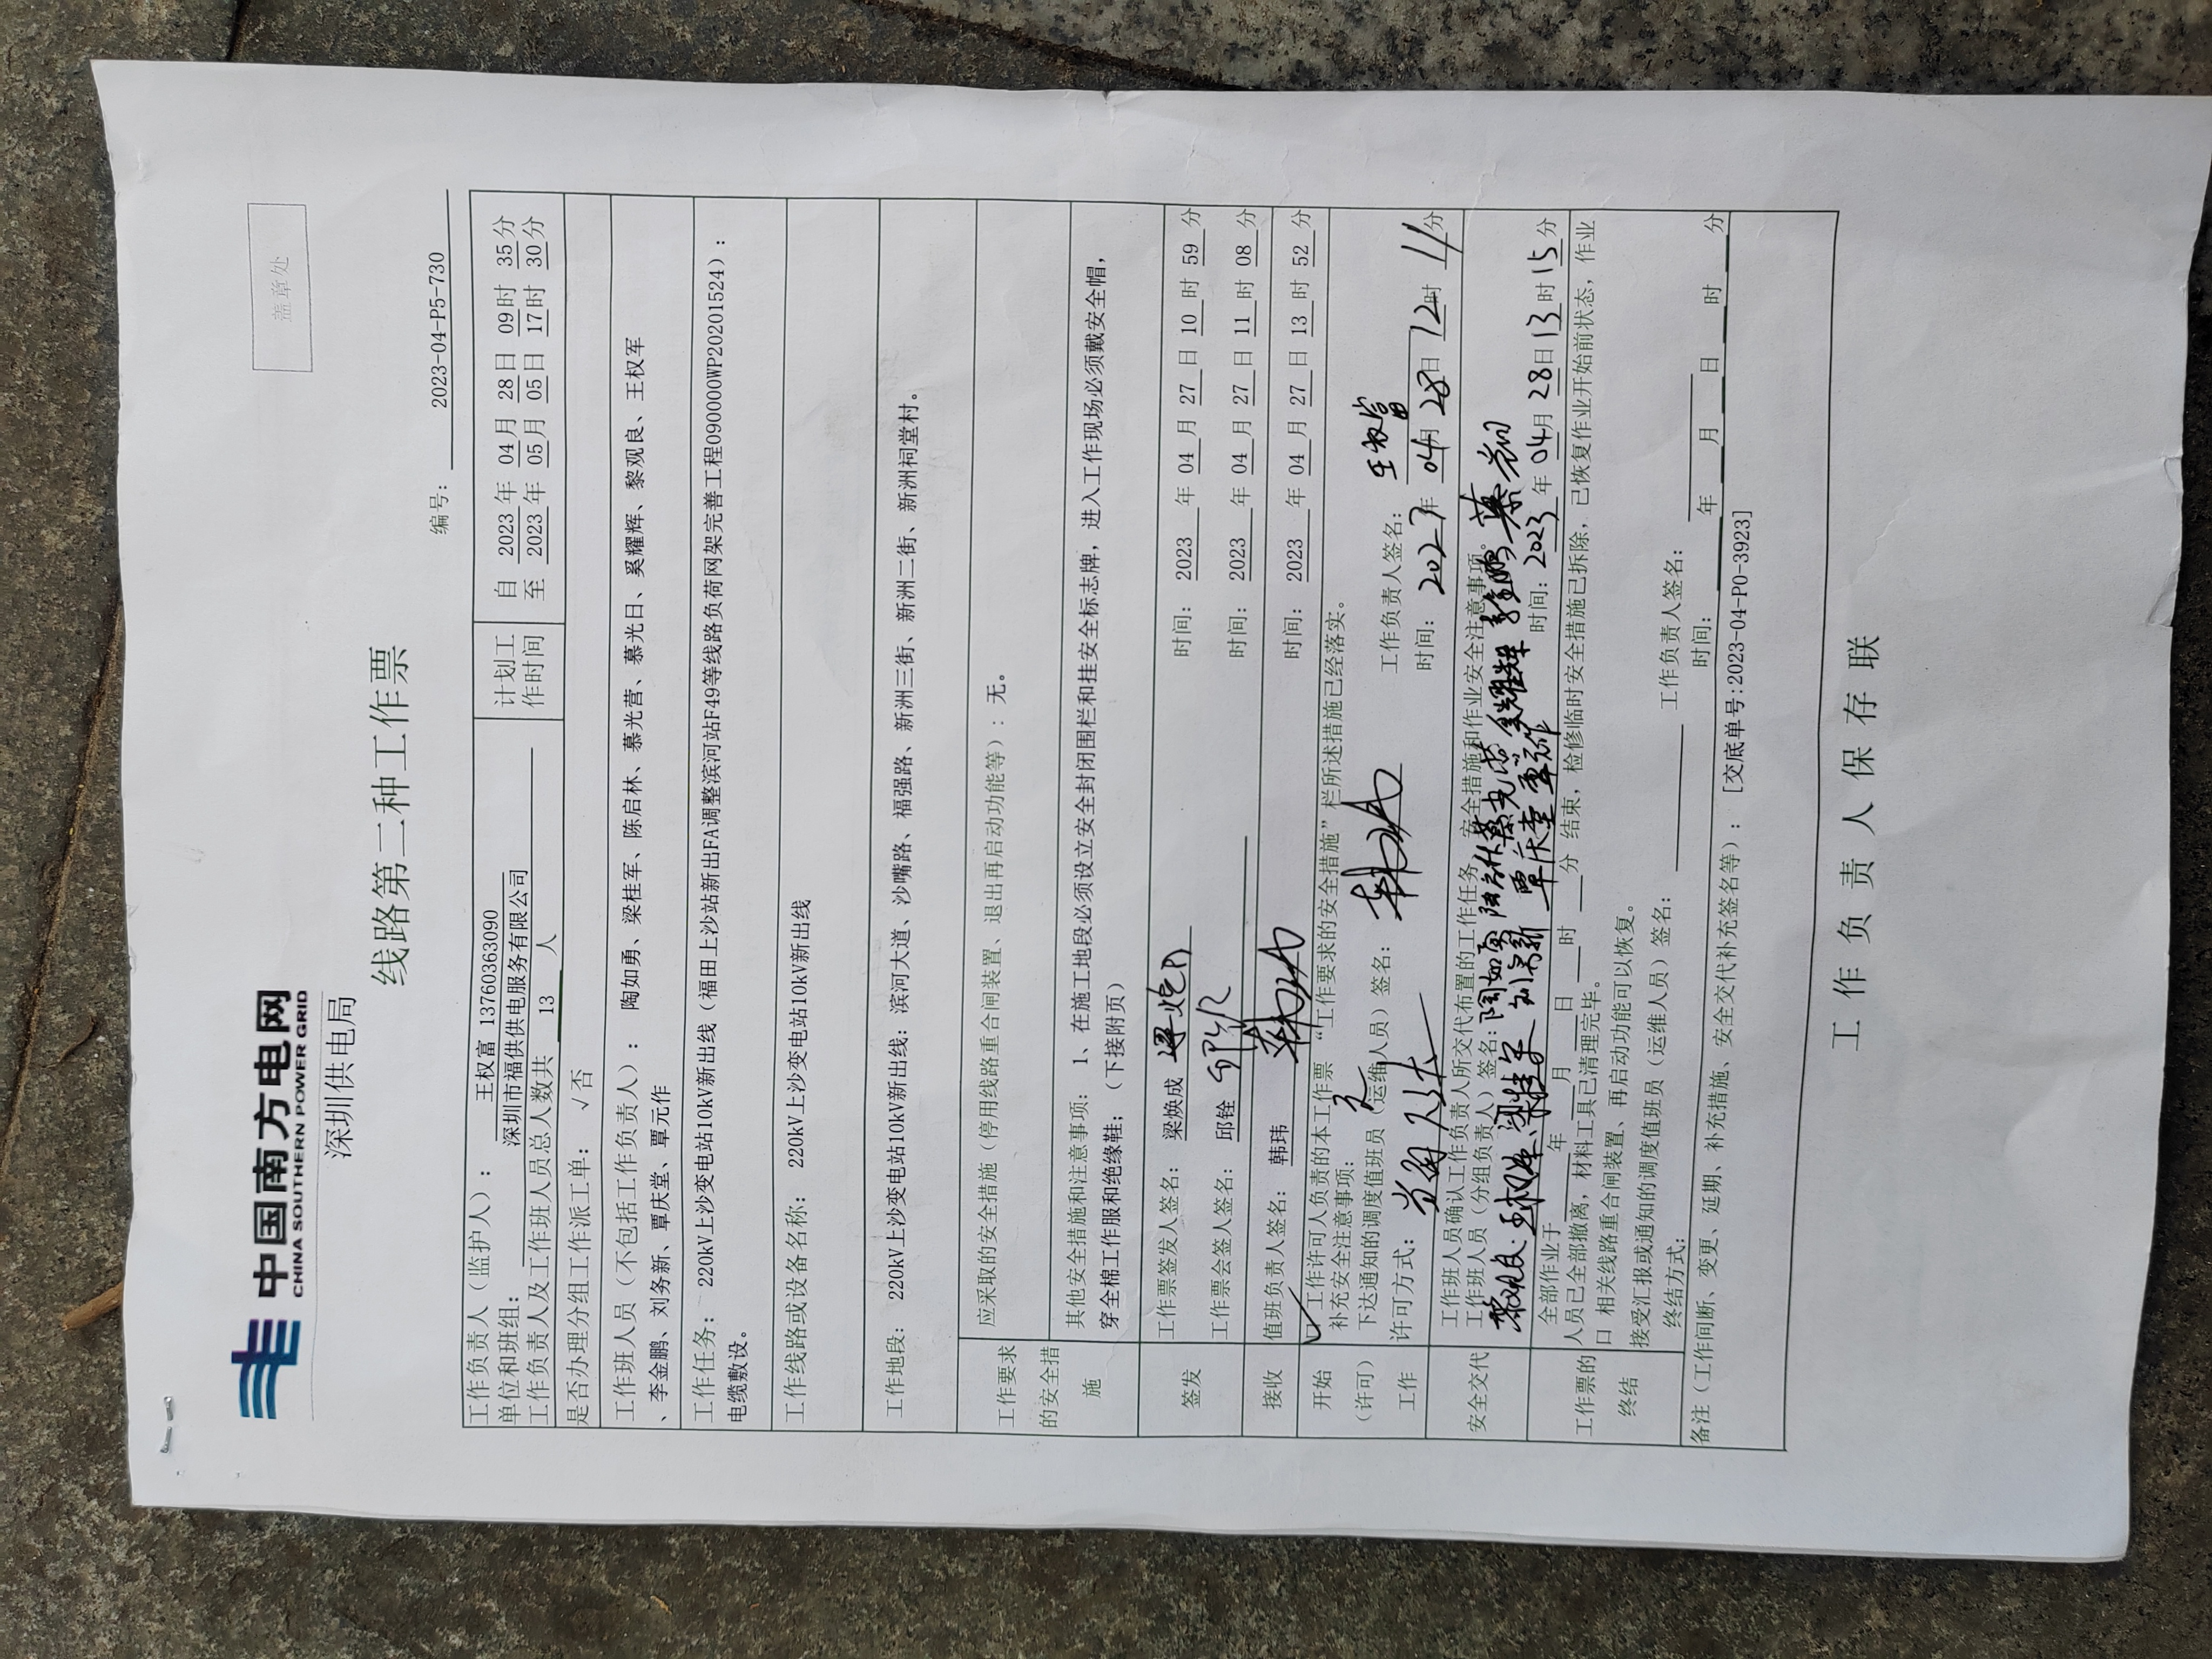 中国南方电网
CHINA SOUTHERN POWER GRID
盖章处
深圳供电局
线路第二种工作票
编号： 2023-04-P5-730
工作负责人（监护人）： 王权富 13760363090
单位和班组： 深圳市福供供电服务有限公司
工作负责人及工作班人员总人数共 13 人
计划工作时间
自 2023 年 04 月 28 日 09 时 35 分
至 2023 年 05 月 05 日 17 时 30 分
是否办理分组工作派工单： √否
工作班人员（不包括工作负责人）： 陶如勇、梁桂军、陈启林、慕光营、慕光日、奚耀辉、黎观良、王权军
、李金鹏、刘务新、覃庆堂、覃元作
工作任务： 220kV上沙变电站10kV新出线（福田上沙站新出FA调整滨河站F49等线路负荷网架完善工程090000WP20201524）：
电缆敷设。
工作线路或设备名称： 220kV上沙变电站10kV新出线
工作地段： 220kV上沙变电站10kV新出线：滨河大道、沙嘴路、福强路、新洲三街、新洲二街、新洲祠堂村。
工作要求的安全措施
应采取的安全措施（停用线路重合闸装置、退出再启动功能等）：无。
其他安全措施和注意事项： 1、在施工地段必须设立安全封闭围栏和挂安全标志牌，进入工作现场必须戴安全帽，
穿全棉工作服和绝缘鞋；（下接附页）
签发
工作票签发人签名： 梁焕成 时间： 2023 年 04 月 27 日 10 时 59 分
工作票会签人签名： 邱铨 时间： 2023 年 04 月 27 日 11 时 08 分
接收
值班负责人签名： 韩玮 韩玮 时间： 2023 年 04 月 27 日 13 时 52 分
开始（许可）工作
工作许可人负责的本工作票“工作要求的安全措施”栏所述措施已经落实。
补充安全注意事项： 无
下达通知的调度值班员（运维人员）签名： 韩玮 工作负责人签名： 王权富
许可方式： 当面 时间： 2023年 04月 28日 12时 11分
安全交代
工作班人员确认工作负责人所交代布置的工作任务、安全措施和作业安全注意事项。
工作班人员（分组负责人）签名： 陶如勇 陈启林 慕光营 奚耀辉 李金鹏
黎观良 王权军 梁桂军 刘务新 覃庆堂 覃元作 时间： 2023 年 04月 28日 13时 15分
工作票的终结
全部作业于 年 月 日 时 分 结束，检修临时安全措施已拆除，已恢复作业开始前状态，作业
人员已全部撤离，材料工具已清理完毕。
口 相关线路重合闸装置、再启动功能可以恢复。
接受汇报或通知的调度值班员（运维人员）签名： 工作负责人签名：
终结方式： 时间： 年 月 日 时 分
备注（工作间断、变更、延期、补充措施、安全交代补充签名等）： [交底单号:2023-04-P0-3923]
工作负责人保存联